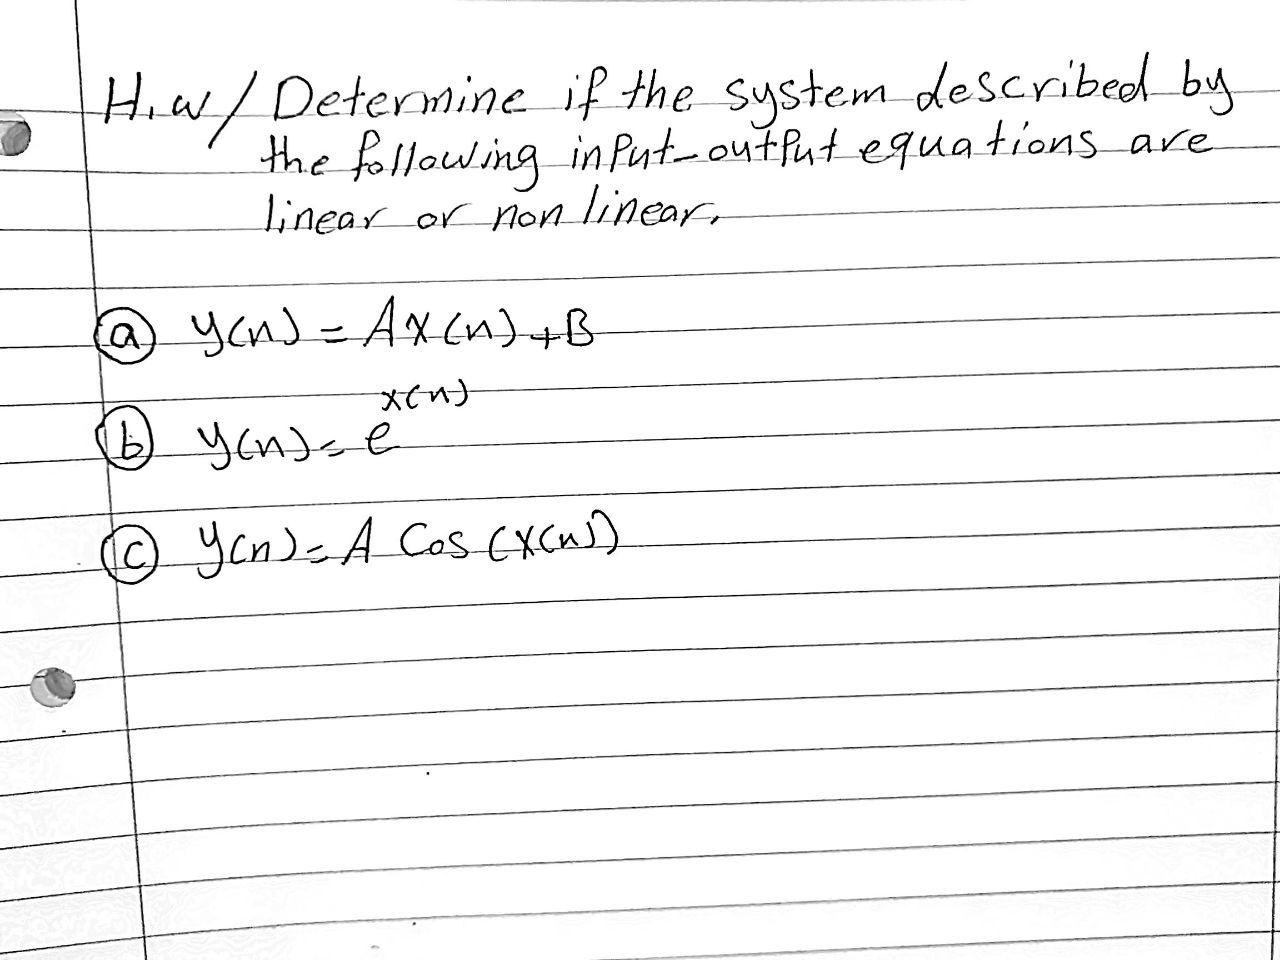 H.w/ Determine if the system described by
the following input-output equations are
linear or non linear.
ⓐ y(n) = Ax(n)+B
ⓑ y(n) = e^x(n)
ⓒ y(n) = A Cos (x(n))